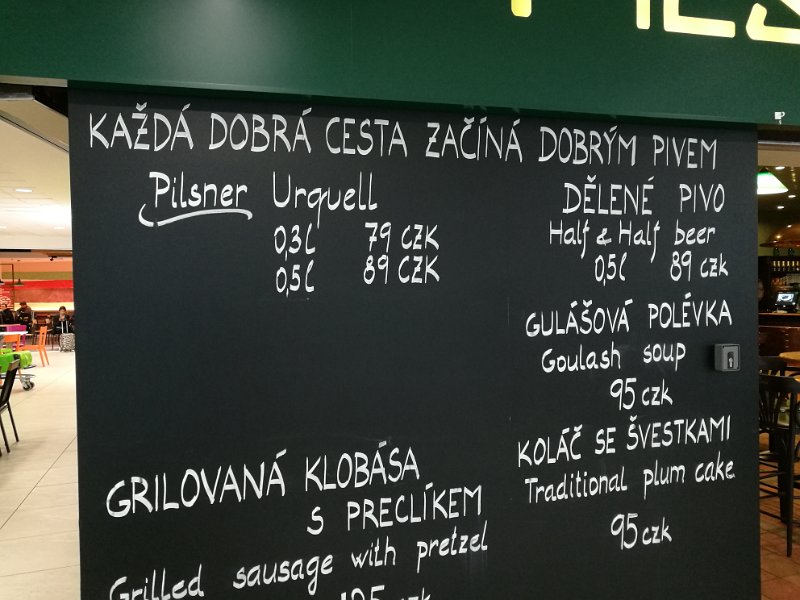 KAŽDÁ DOBRÁ CESTA ZAČÍNÁ DOBRÝM PIVEM
Pilsner Urquell
0,3l 79 CZK
0,5l 89 CZK
DĚLENÉ PIVO
Half & Half beer
0,5l 89 czk
GULÁŠOVÁ POLÉVKA
Goulash soup
95 czk
KOLÁČ SE ŠVESTKAMI
Traditional plum cake
95 czk
GRILOVANÁ KLOBÁSA
S PRECLÍKEM
Grilled sausage with pretzel